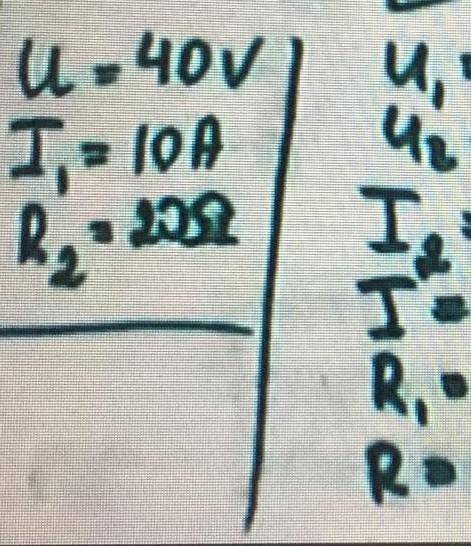 U = 40V
I₁ = 10A
R₂ = 20Ω
U₁ =
U₂
I₂ =
I =
R₁ =
R =